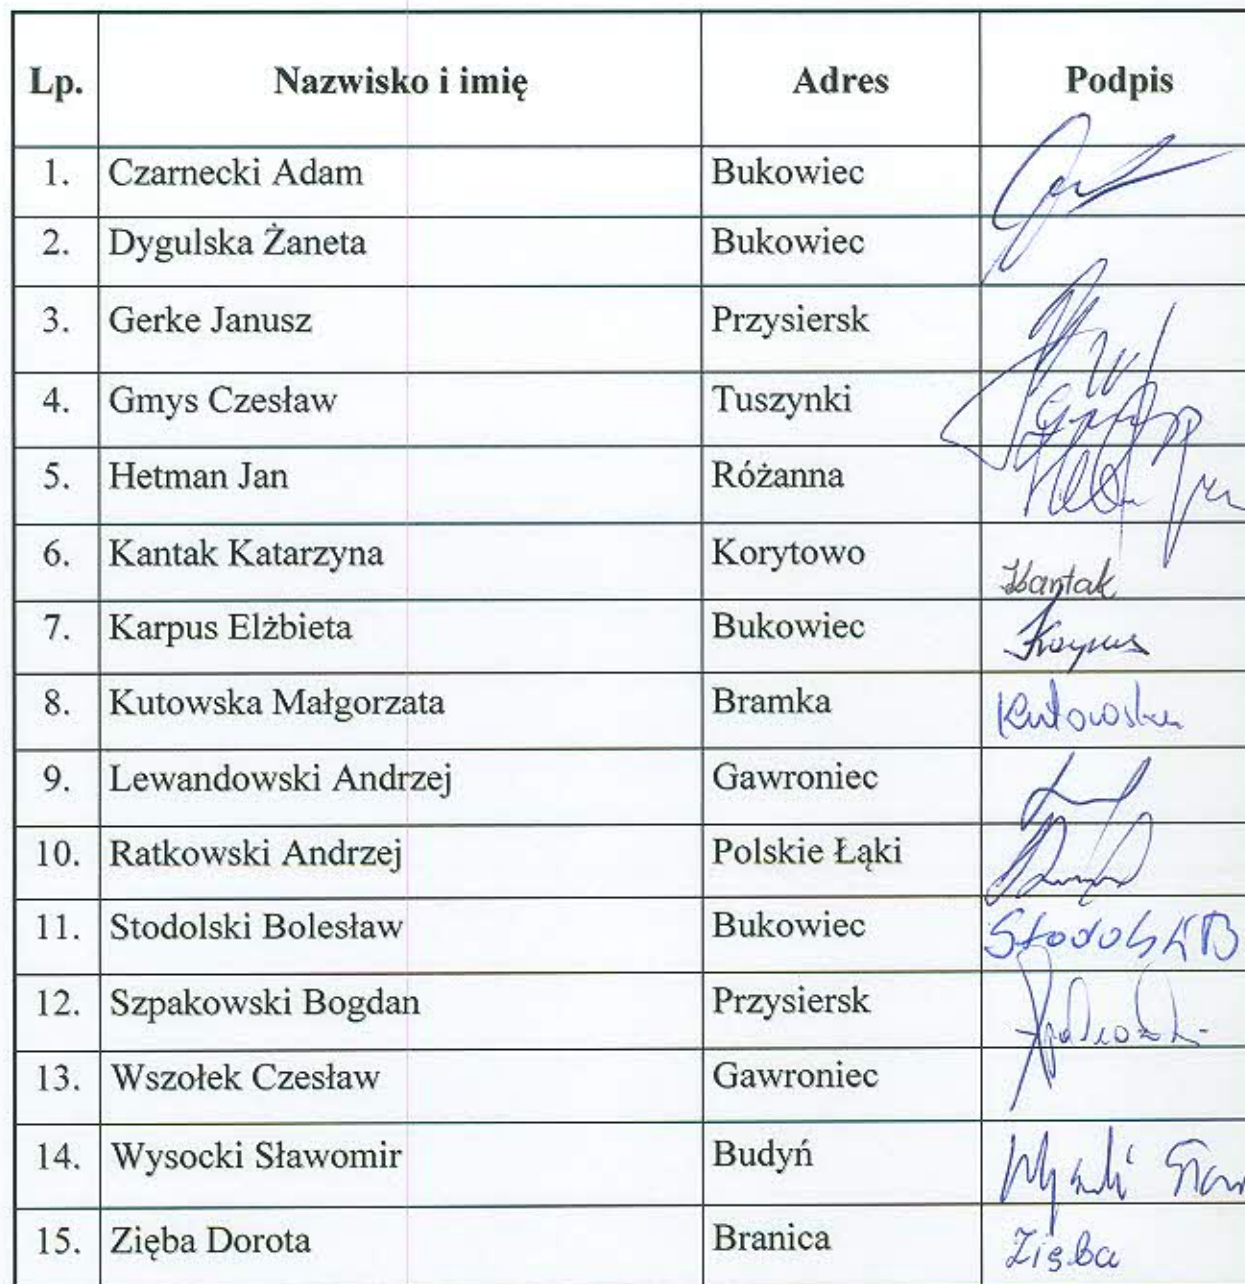 Lp. Nazwisko i imię Adres Podpis
1. Czarnecki Adam Bukowiec
2. Dygulska Żaneta Bukowiec
3. Gerke Janusz Przysiersk
4. Gmys Czesław Tuszynki
5. Hetman Jan Różanna
6. Kantak Katarzyna Korytowo Kantak
7. Karpus Elżbieta Bukowiec Karpus
8. Kutowska Małgorzata Bramka Kutowska
9. Lewandowski Andrzej Gawroniec
10. Ratkowski Andrzej Polskie Łąki
11. Stodolski Bolesław Bukowiec Stodolski B
12. Szpakowski Bogdan Przysiersk
13. Wszołek Czesław Gawroniec
14. Wysocki Sławomir Budyń
15. Zięba Dorota Branica Zięba